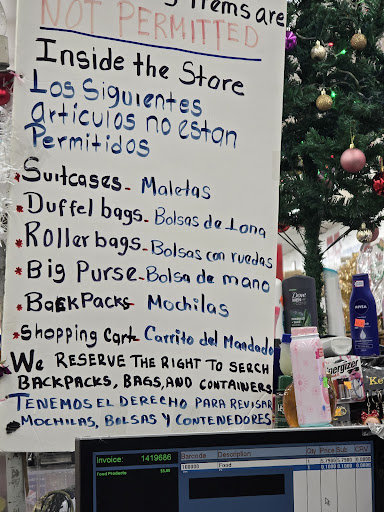 Items are
NOT PERMITTED
Inside the Store
Los Siguientes
articulos no estan
Permitidos
Suitcases- Maletas
Duffel bags- Bolsas de Lona
Roller bags- Bolsas con ruedas
Big Purse- Bolsa de mano
BackPacks- Mochilas
Shopping Cart- Carrito del Mandado
We RESERVE THE RIGHT TO SERCH
BACKPACKS, BAGS, AND CONTAINERS
TENEMOS EL DERECHO PARA REVISAR
MOCHILAS, BOLSAS Y CONTENEDORES
Dove
NIVEA
Energizer
Invoice: 1419686
Barcode Description Qty Price Sub ICRV
Food